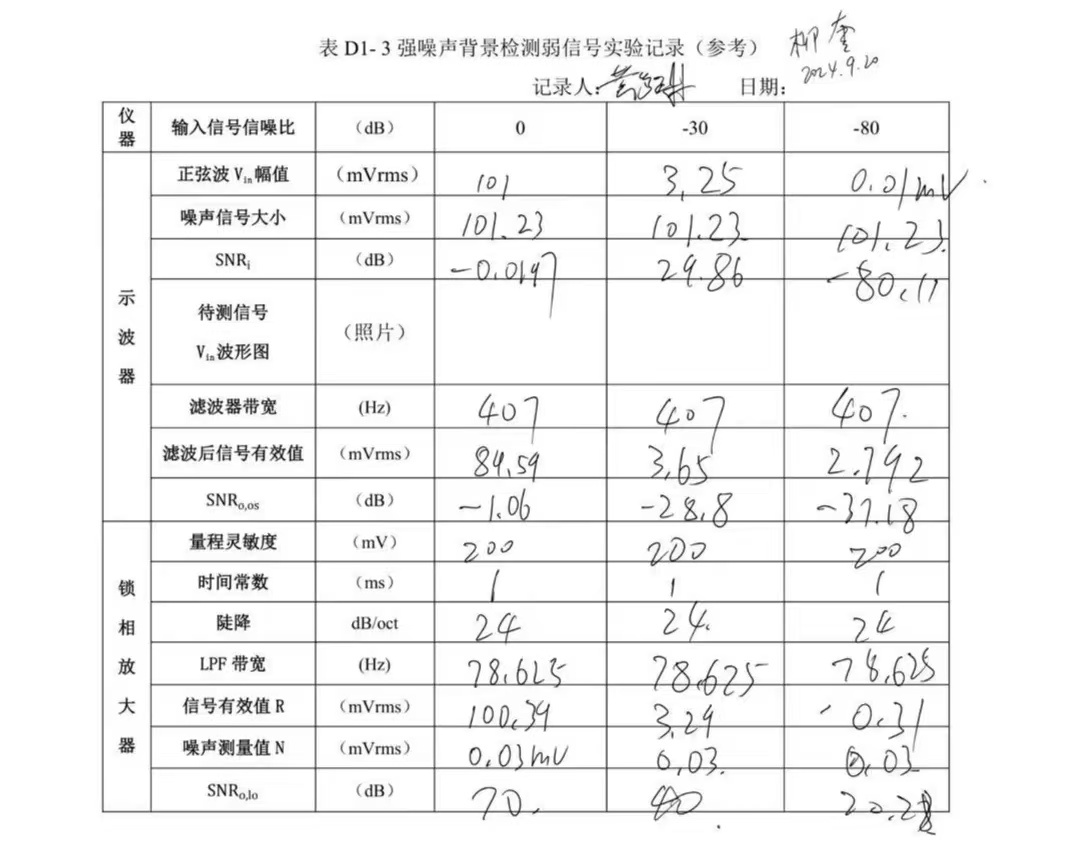 表 D1- 3 强噪声背景检测弱信号实验记录（参考） 柳奎
2024.9.20
记录人： 日期：
仪器 输入信号信噪比 （dB） 0 -30 -80
示波器
正弦波 Vin 幅值 （mVrms） 101 3.25 0.01mV
噪声信号大小 （mVrms） 101.23 101.23 101.23
SNRi （dB） -0.0197 29.86 -80.11
待测信号
Vin 波形图 （照片）
滤波器带宽 (Hz) 407 407 407
滤波后信号有效值 （mVrms） 89.59 3.65 2.792
SNRo,os （dB） -1.06 -28.8 -31.18
锁相放大器
量程灵敏度 （mV） 200 200 200
时间常数 （ms） 1 1 1
陡降 dB/oct 24 24 24
LPF 带宽 (Hz) 78.625 78.625 78.625
信号有效值 R （mVrms） 100.39 3.29 0.31
噪声测量值 N （mVrms） 0.03mV 0.03 0.03
SNRo,lo （dB） 70. 40 20.28